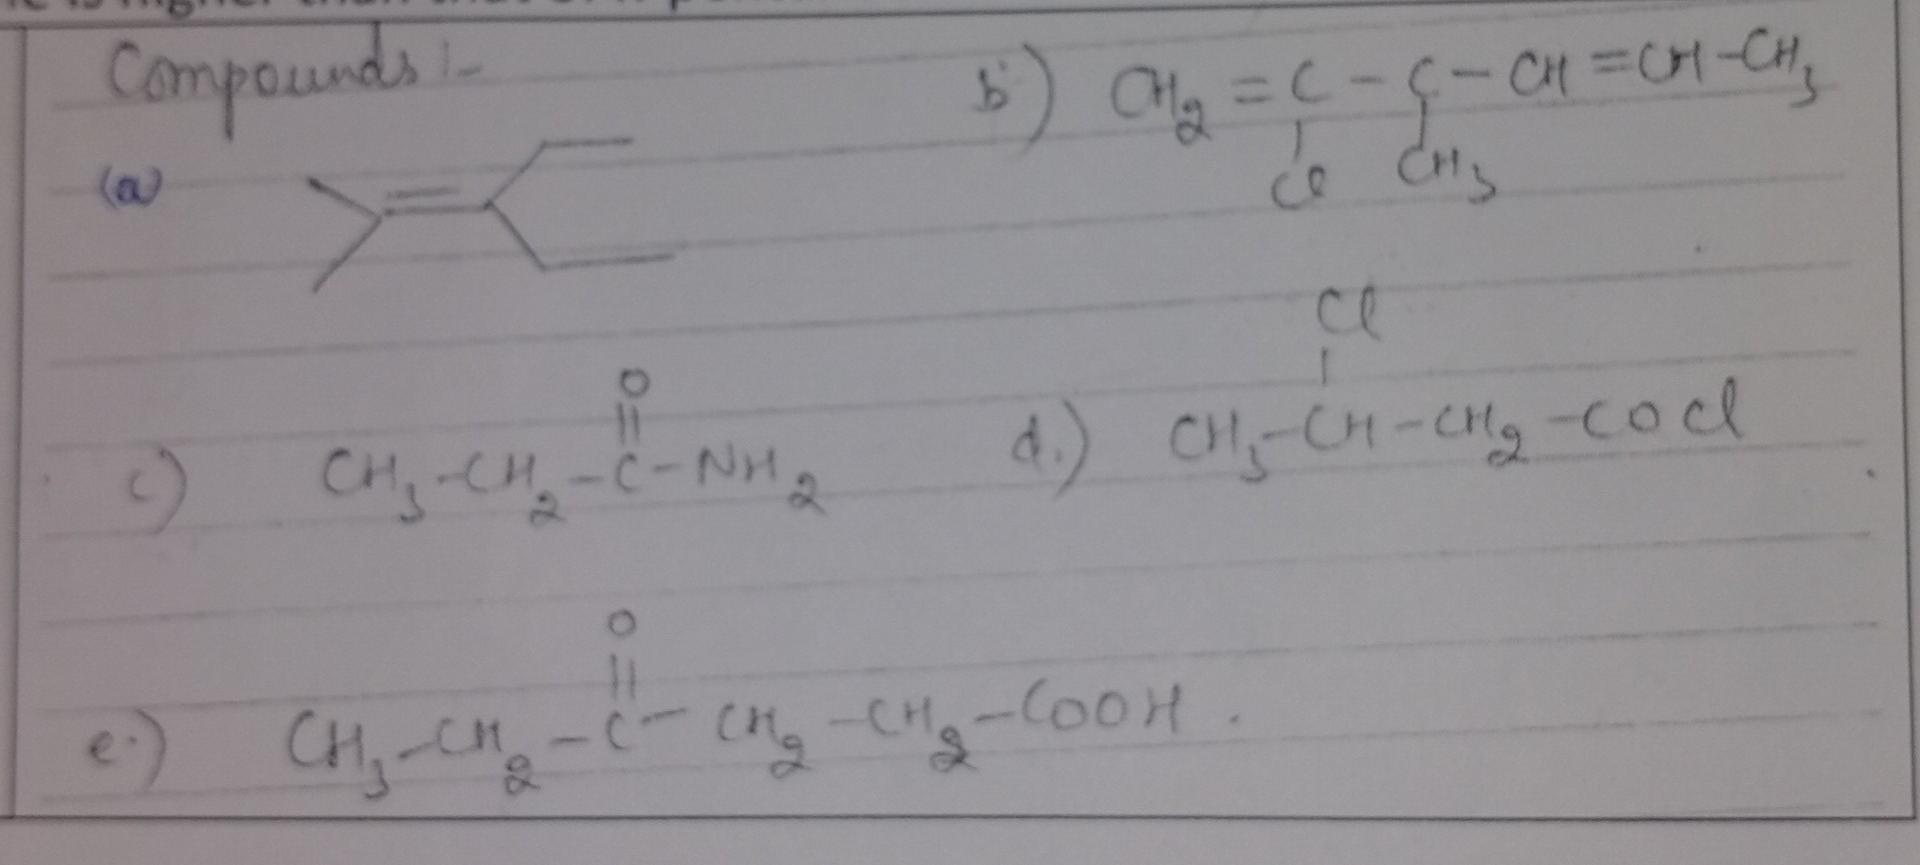 Compounds :-
(a)
b) CH2 = C - C - CH = CH - CH3
Cl CH3
c) CH3 - CH2 - C - NH2
O
d.) CH3 - CH - CH2 - COCl
Cl
e.) CH3 - CH2 - C - CH2 - CH2 - COOH .
O